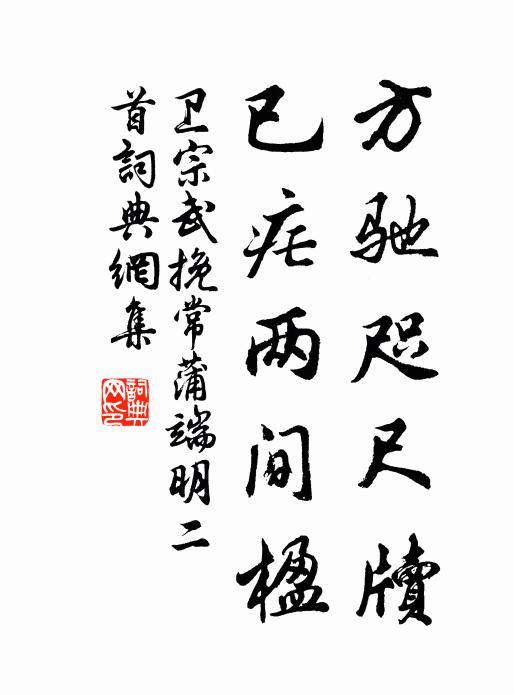 方驰咫尺牍
已疟两间楹
卫宗武挽常蒲端明二
首詞典網集
詞典
网印